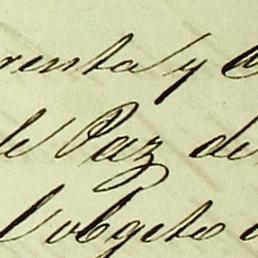 renta y
de Paz de
l obgeto